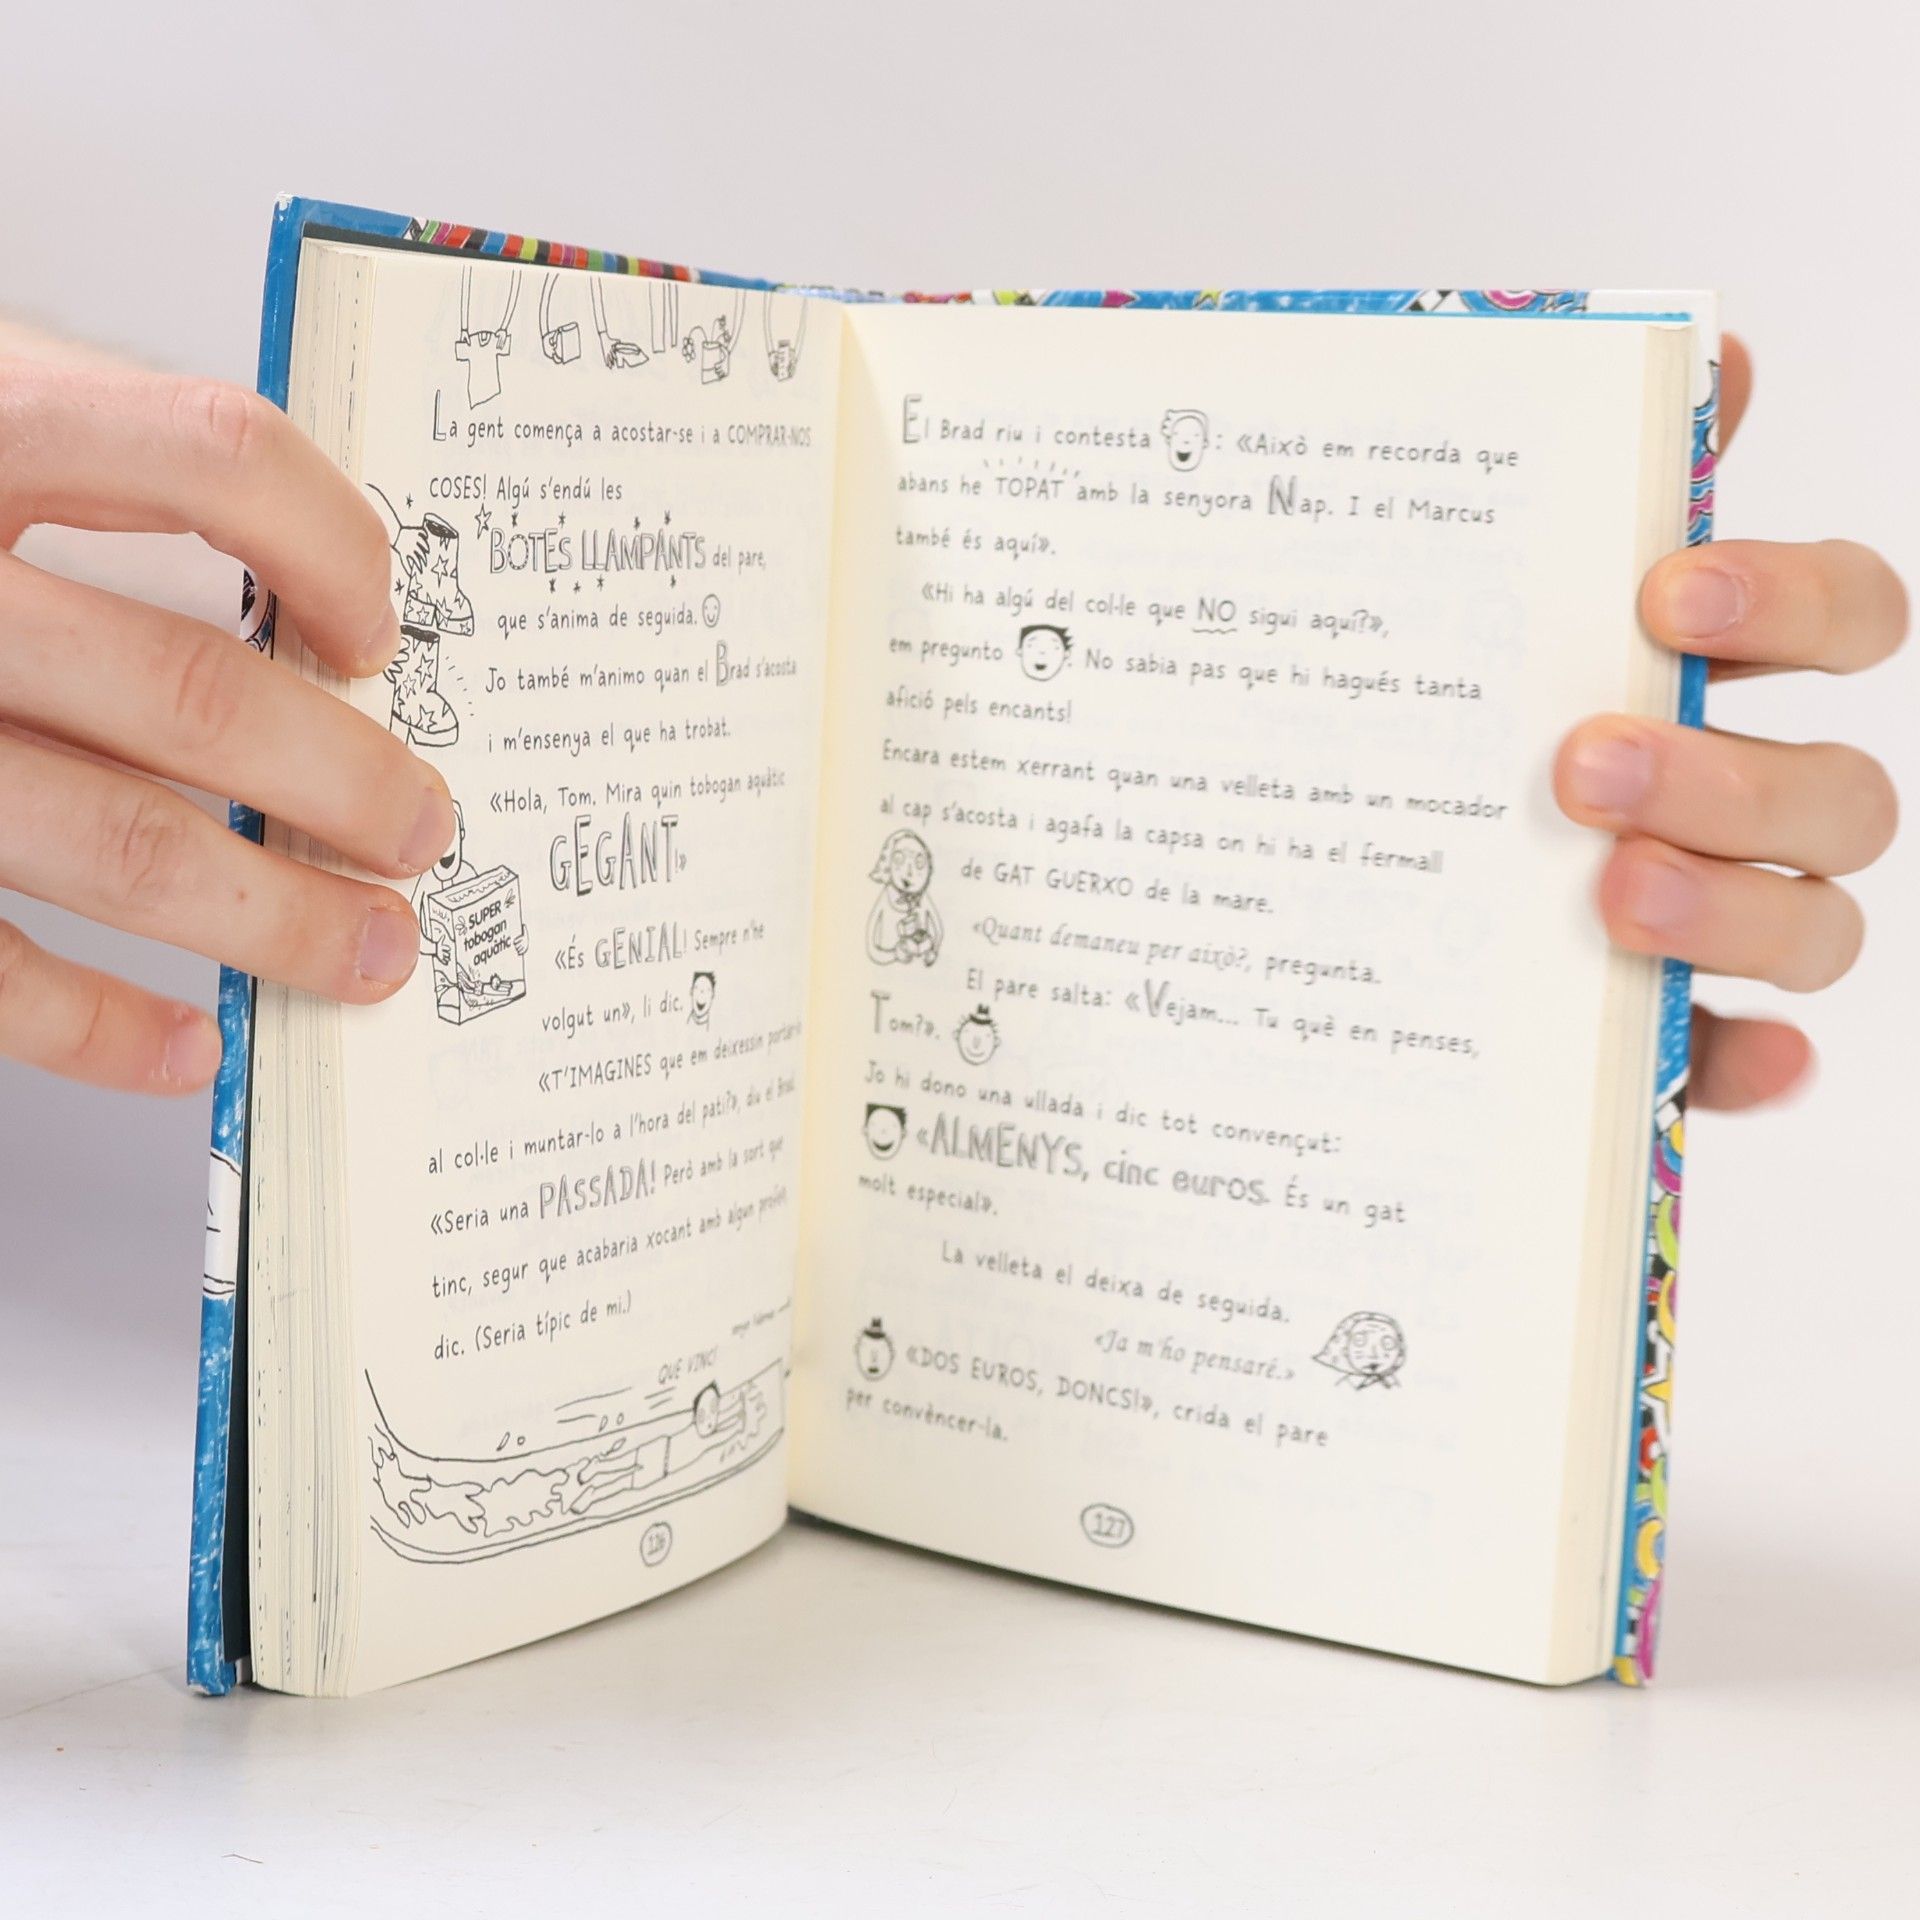 La gent comença a acostar-se i a COMPRAR-NOS
COSES! Algú s'endú les
BOTES LLAMPANTS del pare,
que s'anima de seguida.
Jo també m'animo quan el Brad s'acosta
i m'ensenya el que ha trobat.
«Hola, Tom. Mira quin tobogan aquàtic
GEGANT!»
SUPER
tobogan
aquàtic
«És GENIAL! Sempre n'he
volgut un», li dic.
«T'IMAGINES que em deixessin portar-lo
al col·le i muntar-lo a l'hora del pati?», diu el Brad.
«Seria una PASSADA! Però amb la sort que
tinc, segur que acabaria xocant amb algun profe»,
dic. (Seria típic de mi.)
QUE VINC!
126
El Brad riu i contesta : «Això em recorda que
abans he TOPAT amb la senyora Nap. I el Marcus
també és aquí».
«Hi ha algú del col·le que NO sigui aquí?»,
em pregunto . No sabia pas que hi hagués tanta
afició pels encants!
Encara estem xerrant quan una velleta amb un mocador
al cap s'acosta i agafa la capsa on hi ha el fermall
de GAT GUERXO de la mare.
«Quant demaneu per això?, pregunta.
El pare salta: «Vejam... Tu què en penses,
Tom?».
Jo hi dono una ullada i dic tot convençut:
«ALMENYS, cinc euros. És un gat
molt especial».
La velleta el deixa de seguida.
«Ja m'ho pensaré.»
«DOS EUROS, DONCS!», crida el pare
per convèncer-la.
127